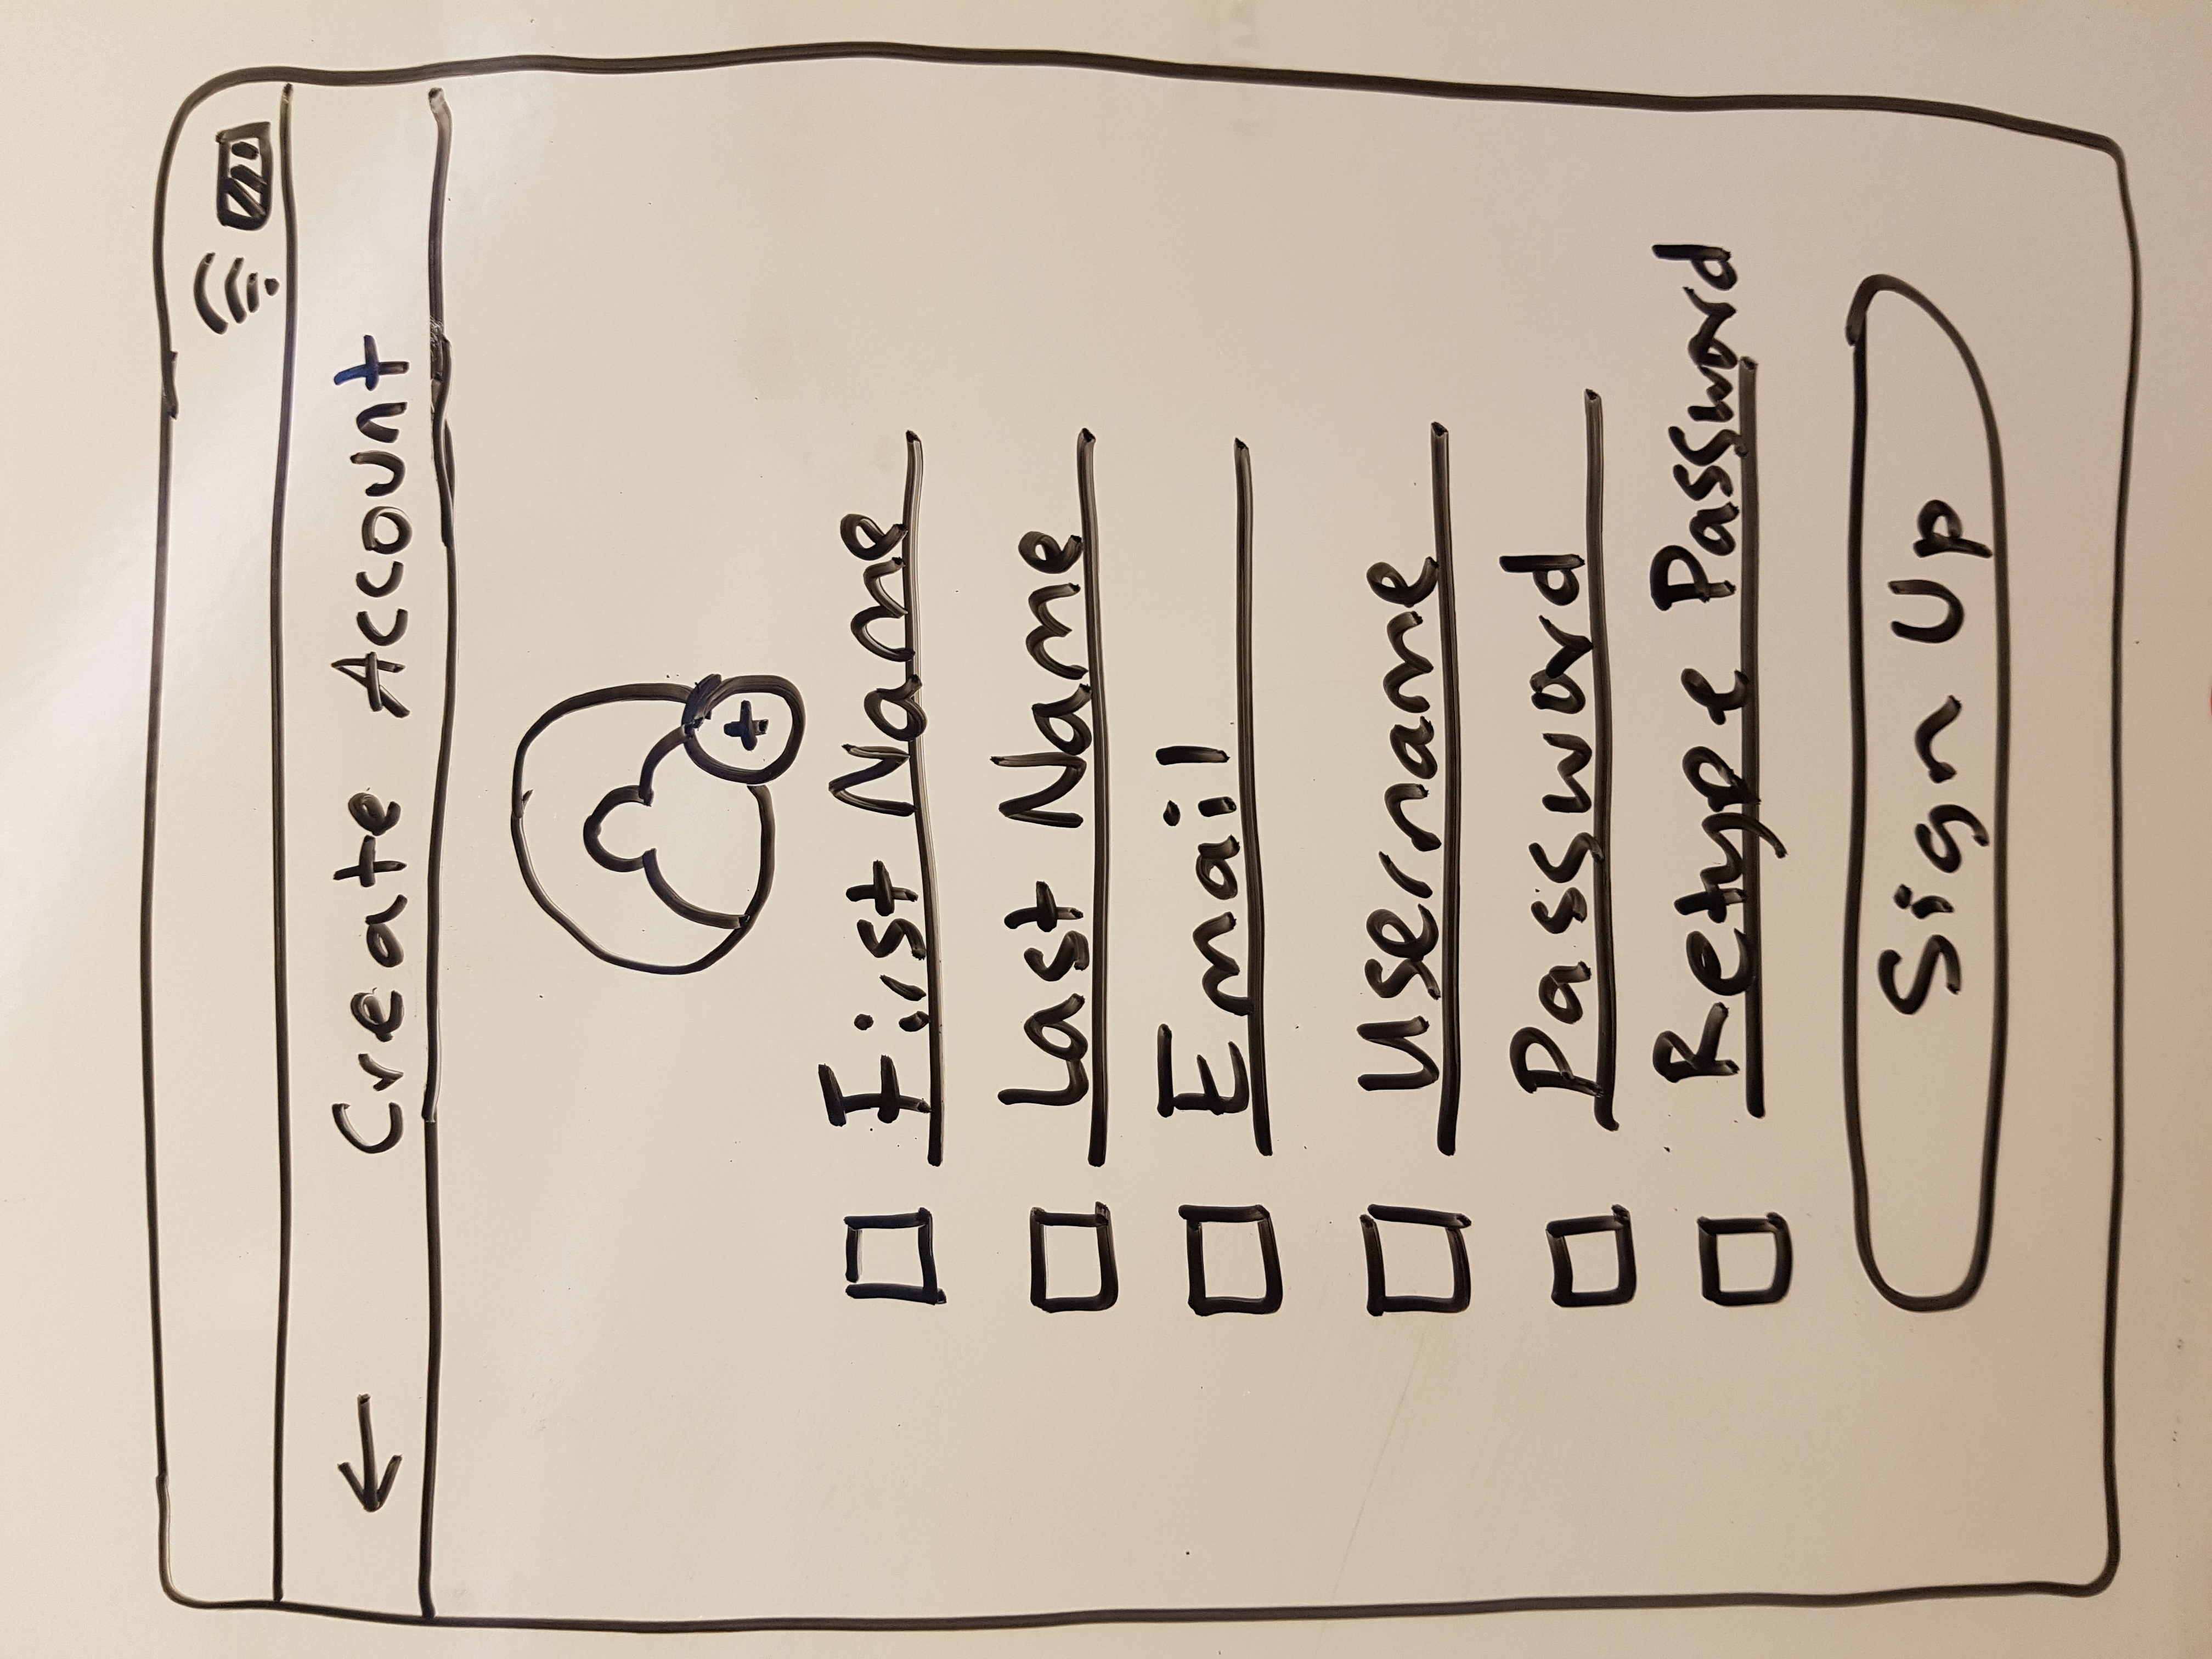 Create Account
First Name
Last Name
Email
Username
Password
Retype Password
Sign Up